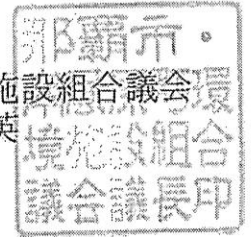 施設組合議会
英
那覇市・
環
境施設組合
議会議長印